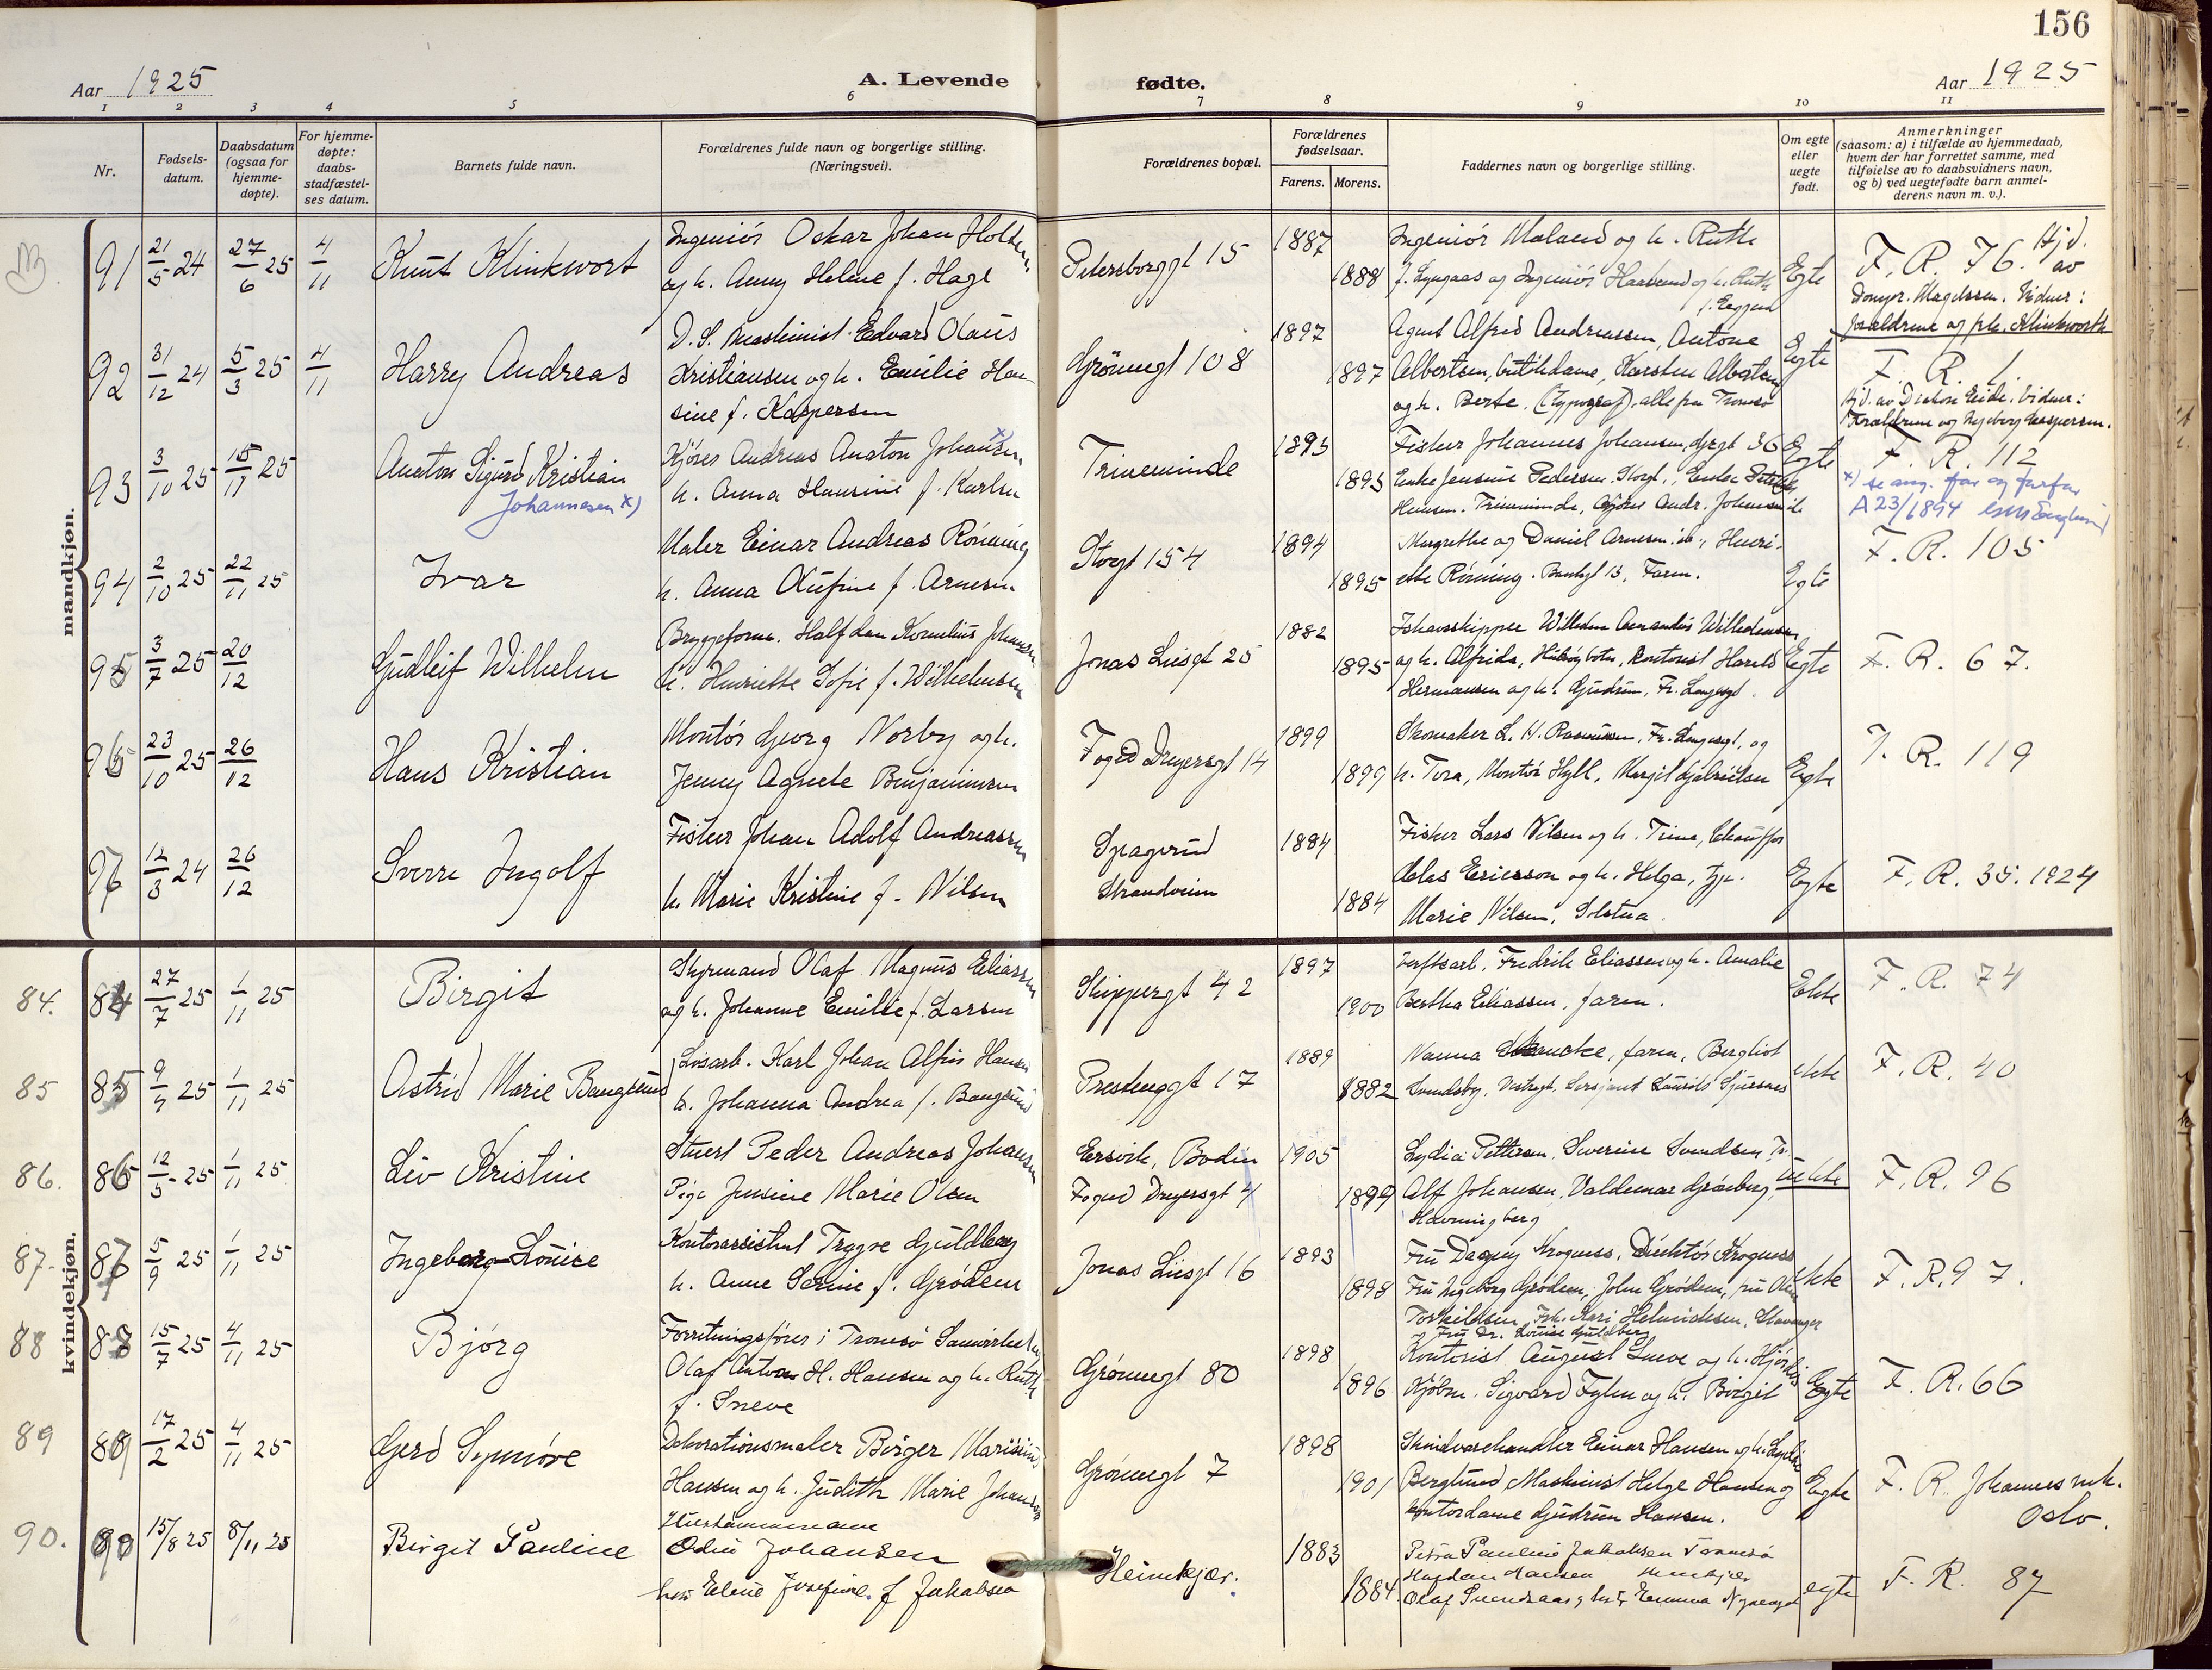 156
Aar 1925
A. Levende fødte.
Aar 1925
1 2 3 4 5 6 7 8 9 10 11
Nr.
Fødsels-
datum.
Daabsdatum
(ogsaa for
hjemme-
døpte).
For hjemme-
døpte:
daabs-
stadfæstel-
ses datum.
Barnets fulde navn.
Forældrenes fulde navn og borgerlige stilling.
(Næringsvei).
Forældrenes bopæl.
Forældrenes
fødselsaar.
Farens. Morens.
Faddernes navn og borgerlige stilling.
Om egte
eller
uegte
født.
Anmerkninger
(saasom: a) i tilfælde av hjemmedaab,
hvem der har forrettet samme, med
tilføielse av to daabsvidners navn,
og b) ved uegtefødte barn anmel-
derens navn m. v.).
mandkjøn.
91 21/5 24 27/6 25 4/11 Knut Klinkwort
Ingeniør Oskar Johan Holden
og h. Anny Helene f. Hage
Petersborggt 15 1887 1888
Ingeniør Maland og h. Ruth
f. Lyngaas og Ingeniør Haasund og h. Ruth
f. Eggen
Egte
F. R. 76. Hjd. av
Dompr. Magelssen. Vidner:
forældrene og frk. Klinkworth
92 31/12 24 5/3 25 4/11 Harry Andreas
D. S. Maskinist Edvard Olaus
Kristiansen og h. Emilie Han-
sine f. Kaspersen
Grønnegt 108 1897 1897
Agent Alfred Andreassen, Antone
Albertsen, butikdame, Karsten Albertsen
og h. Berte. (Typograf), alle fra Tromsø
Egte
F. R. 1.
Hjd. av Diakon Eide. Vidner:
Forældrene og Ingeborg Kaspersen.
93 3/10 25 15/11 25 Anaton Sigurd Kristian
Johannesen x)
Kjører Andreas Anaton Johansen x)
h. Anna Hansine f. Karlsen
Trineminde 1893 1893
Fisker Johannes Johansen, Grgt 36
Enke Jensine Pedersen, Storgt, Enke Petrikke
Hansen. Trineminde, Kjører Andr. Johansen ib
Egte
F. R. 112
x) se ang. far og farfar
A 23/1894
94 2/10 25 22/11 25 Ivar
Maler Einar Andreas Rønning
h. Anna Rufine f. Arnesen
Storgt 154 1894 1895
Margrethe og Daniel Arnesen ib., Henri-
ette Rønning. Bankgt 13, Faren.
Egte
F. R. 105
95 3/7 25 20/12 Gudleif Wilhelm
Bryggeform. Halfdan Kornelius Johansen
h. Henriette Sofie f. Wilhelmsen
Jonas Liesgt 25 1882 1895
Ishavsskipper Wilhelm Amandus Wilhelmsen
og h. Alfrida, Kontorist Harald
Hermansen og h. Gudrun, Fr. Langesgt.
Egte
F. R. 67.
96 23/10 25 26/12 Hans Kristian
Montør Georg Norby og h.
Jenny Agnete Benjaminsen
Foged Dreyersgt 14 1899 1899
Skomaker L. H. Rasmussen, Fr. Langesgt, og
h. Tora, Montør Hyll, Margit Gabrielsen
Egte
F. R. 119
97 12/3 24 26/12 Sverre Ingolf
Fisker Johan Adolf Andreassen
h. Marie Kristine f. Nilsen
Strandveien 1884 1884
Fisker Lars Nilsen og h. Trine, Chauffør
Claes Ericsson og h. Helga, Tjp.
Marie Nilsen, Solstua.
Egte
F. R. 35. 1924
kvindekjøn.
84. 84 27/7 25 1/11 25 Birgit
Styrmand Olaf Magnus Eliassen
og h. Johanne Emilie f. Larsen
Skippergt 42 1897 1900
Verftsarb. Fredrik Eliassen og h. Amalie
Bertha Eliassen, faren.
Ekte
F. R. 74
85 85 9/4 25 1/11 25 Astrid Marie Bangsund
Løsarb. Karl Johan Alfin Hansen
h. Johanna Andrea f. Bangsund
Prestenggt 17 1889 1882
Nanna, faren, Bergliot
Svendsby, Vestregt, Sersjant Laurits Gjersnes
ekte
F. R. 40
86. 86 12/5 25 1/11 25 Liv Kristine
Stuert Peder Andreas Johansen
Pige Jensine Marie Olsen
Ersvik, Bodin
Foged Dreyersgt 4 1905 1899
Lydia Pettersen, Severine Svendsen, Fr.
Alf Johansen, Valdemar Grønberg,
Havningberg
uekte
F. R. 96
87- 87 5/9 25 1/11 25 Ingeborg-Louise
Kontorassistent Trygve Guldberg
h. Anne Serine f. Grødem
Jonas Liesgt 16 1893 1898
Fru Dagny Krogness, Direktør Krogness
Fru Ingeborg Grødem, John Grødem, fru Olen
Torkildsen, Frk. Kari Helmichsen, Stavanger
og Fru Dr. Louise Guldberg
ekte
F. R. 97.
88 88 15/7 25 4/11 25 Bjørg
Forretningsfører i Tromsø Samvirkelag
Olaf Anton H. Hansen og h. Ruth
f. Sneve
Grønnegt 80 1898 1896
Kontorist August Sneve og h. Hjørdis
Kjøbm. Sigvard Fylen og h. Birgit
Egte
F. R. 66
89 89 17/2 25 4/11 25 Gerd Synnøve
Dekorationsmaler Birger Marisius
Hansen og h. Judith Marie Johansen
Grønnegt 7 1898 1901
Skindvarehandler Einar Hansen og h. Lydia
Berglund Maskinist Helge Hansen og
kontordame Gudrun Hansen.
Egte
F. R. Johannes mk.
Oslo.
90. 90 15/8 25 8/11 25 Birgit Pauline
Odin Johansen
hu Eline Josefine f Jakobsen
Heimkjær. 1883 1884
Petra Pauline Jakobsen Tromsø
Haldan Hansen
Olaf Svendsen, hst. Emma
egte
F. R. 87